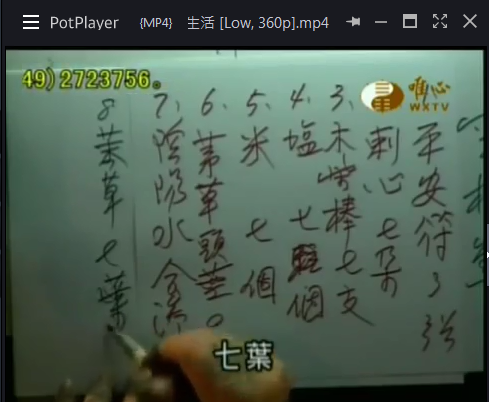 PotPlayer {MP4} 生活 [Low, 360p].mp4
49)2723756。
唯心
WXTV
平安符3張
刺心七
3、木 棒七支
4、塩 七 個
5、米 七個
6、茅草頭 。
7、陰陽水合
8 茅草七葉
七葉